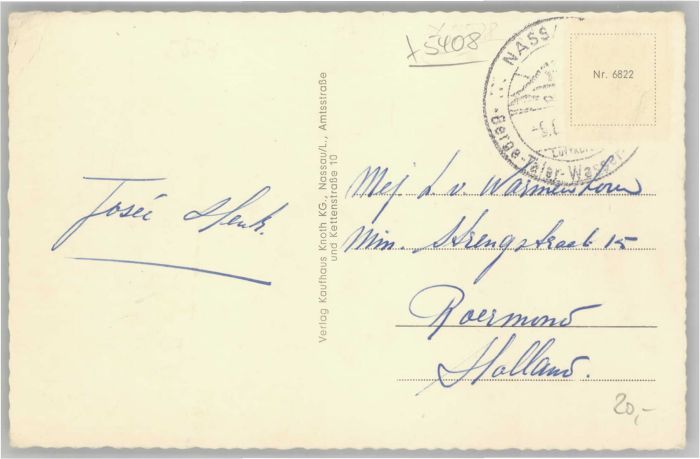 +5408
NASSA
Nr. 6822
Berge-Täler-Wasser
Verlag Kaufhaus Knoth KG., Nassau/L., Amtsstraße
und Kettenstraße 10
José Henk.
Mej. L. v. Warmenhoven
Min. Strengstraat 15
Roermond
Holland.
20,-